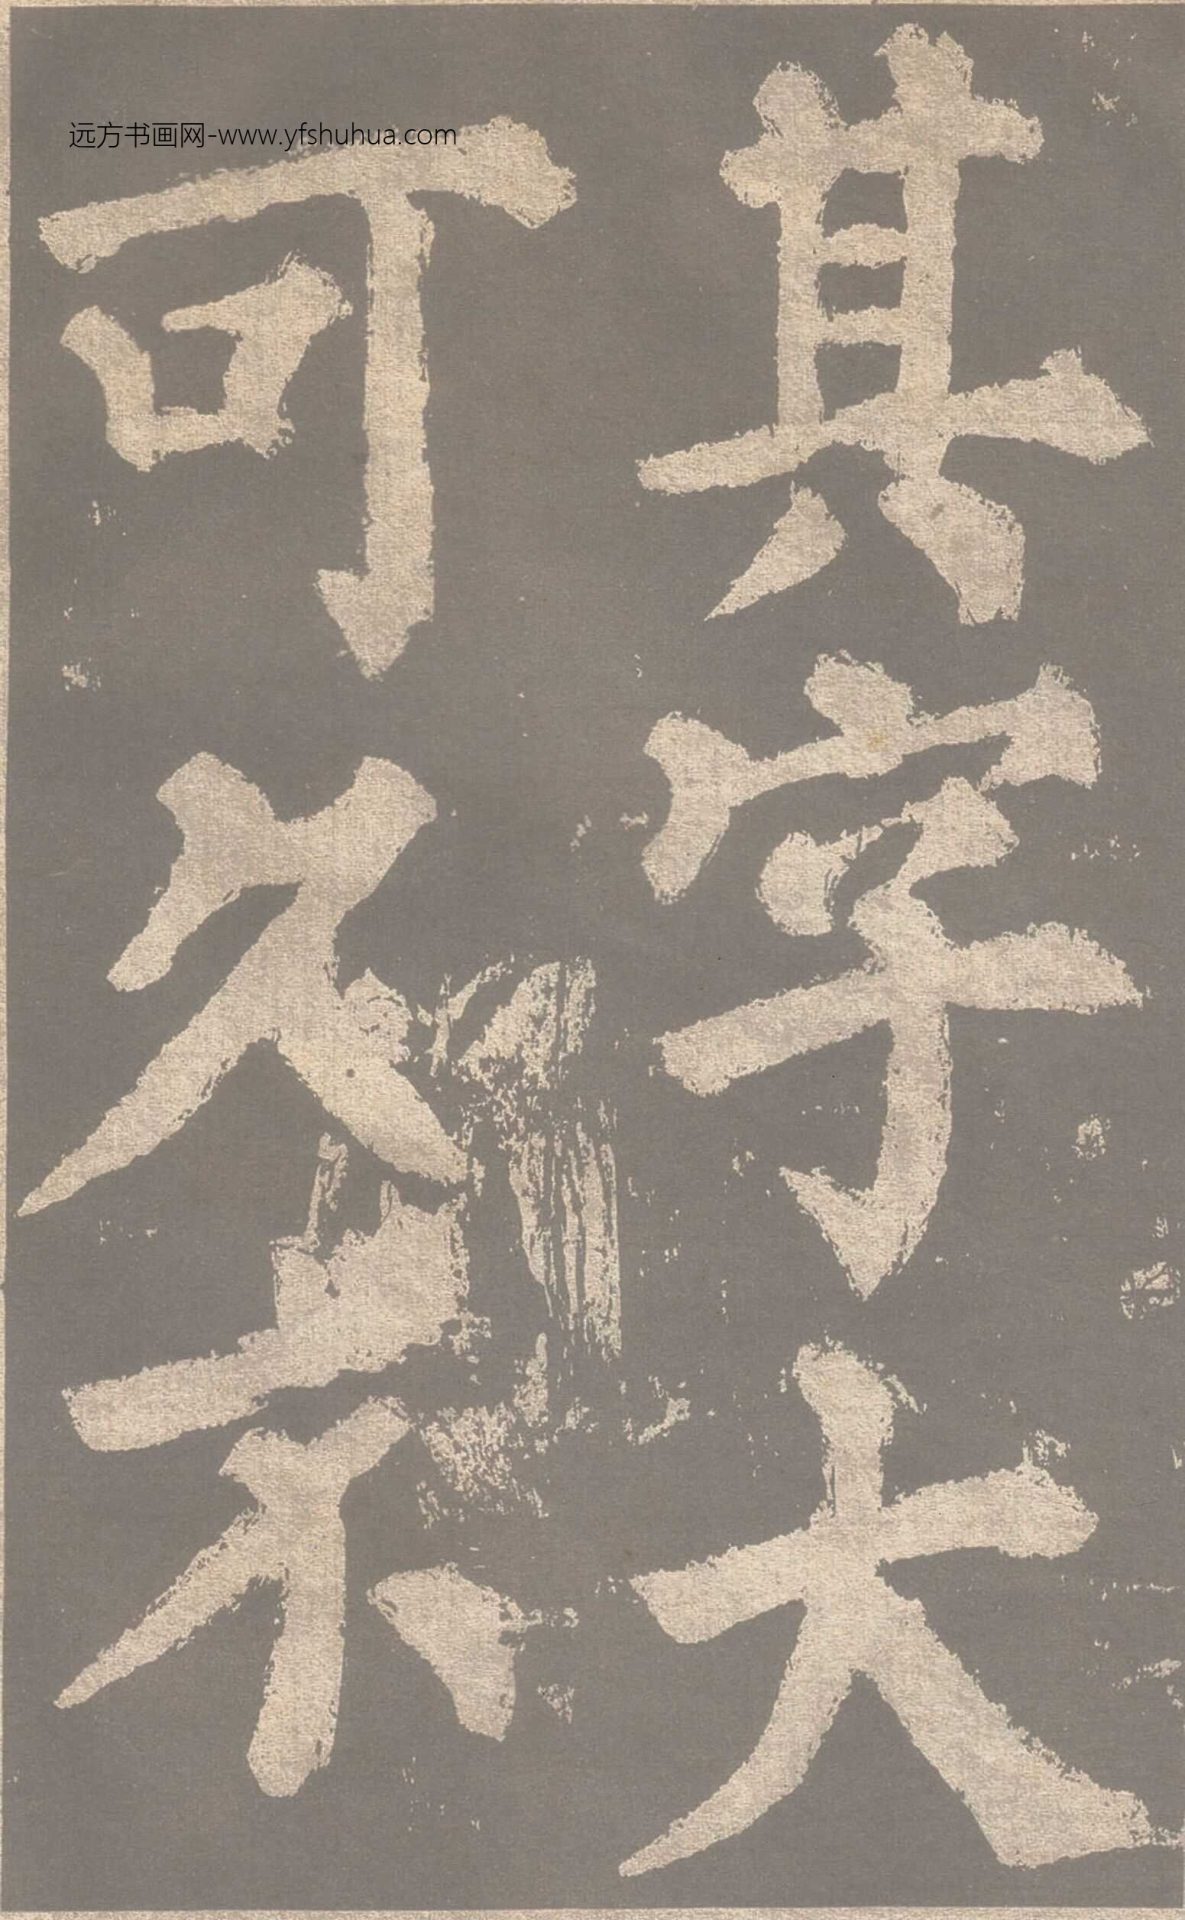 远方书画网-www.yfshuhua.com
其字大
可久不